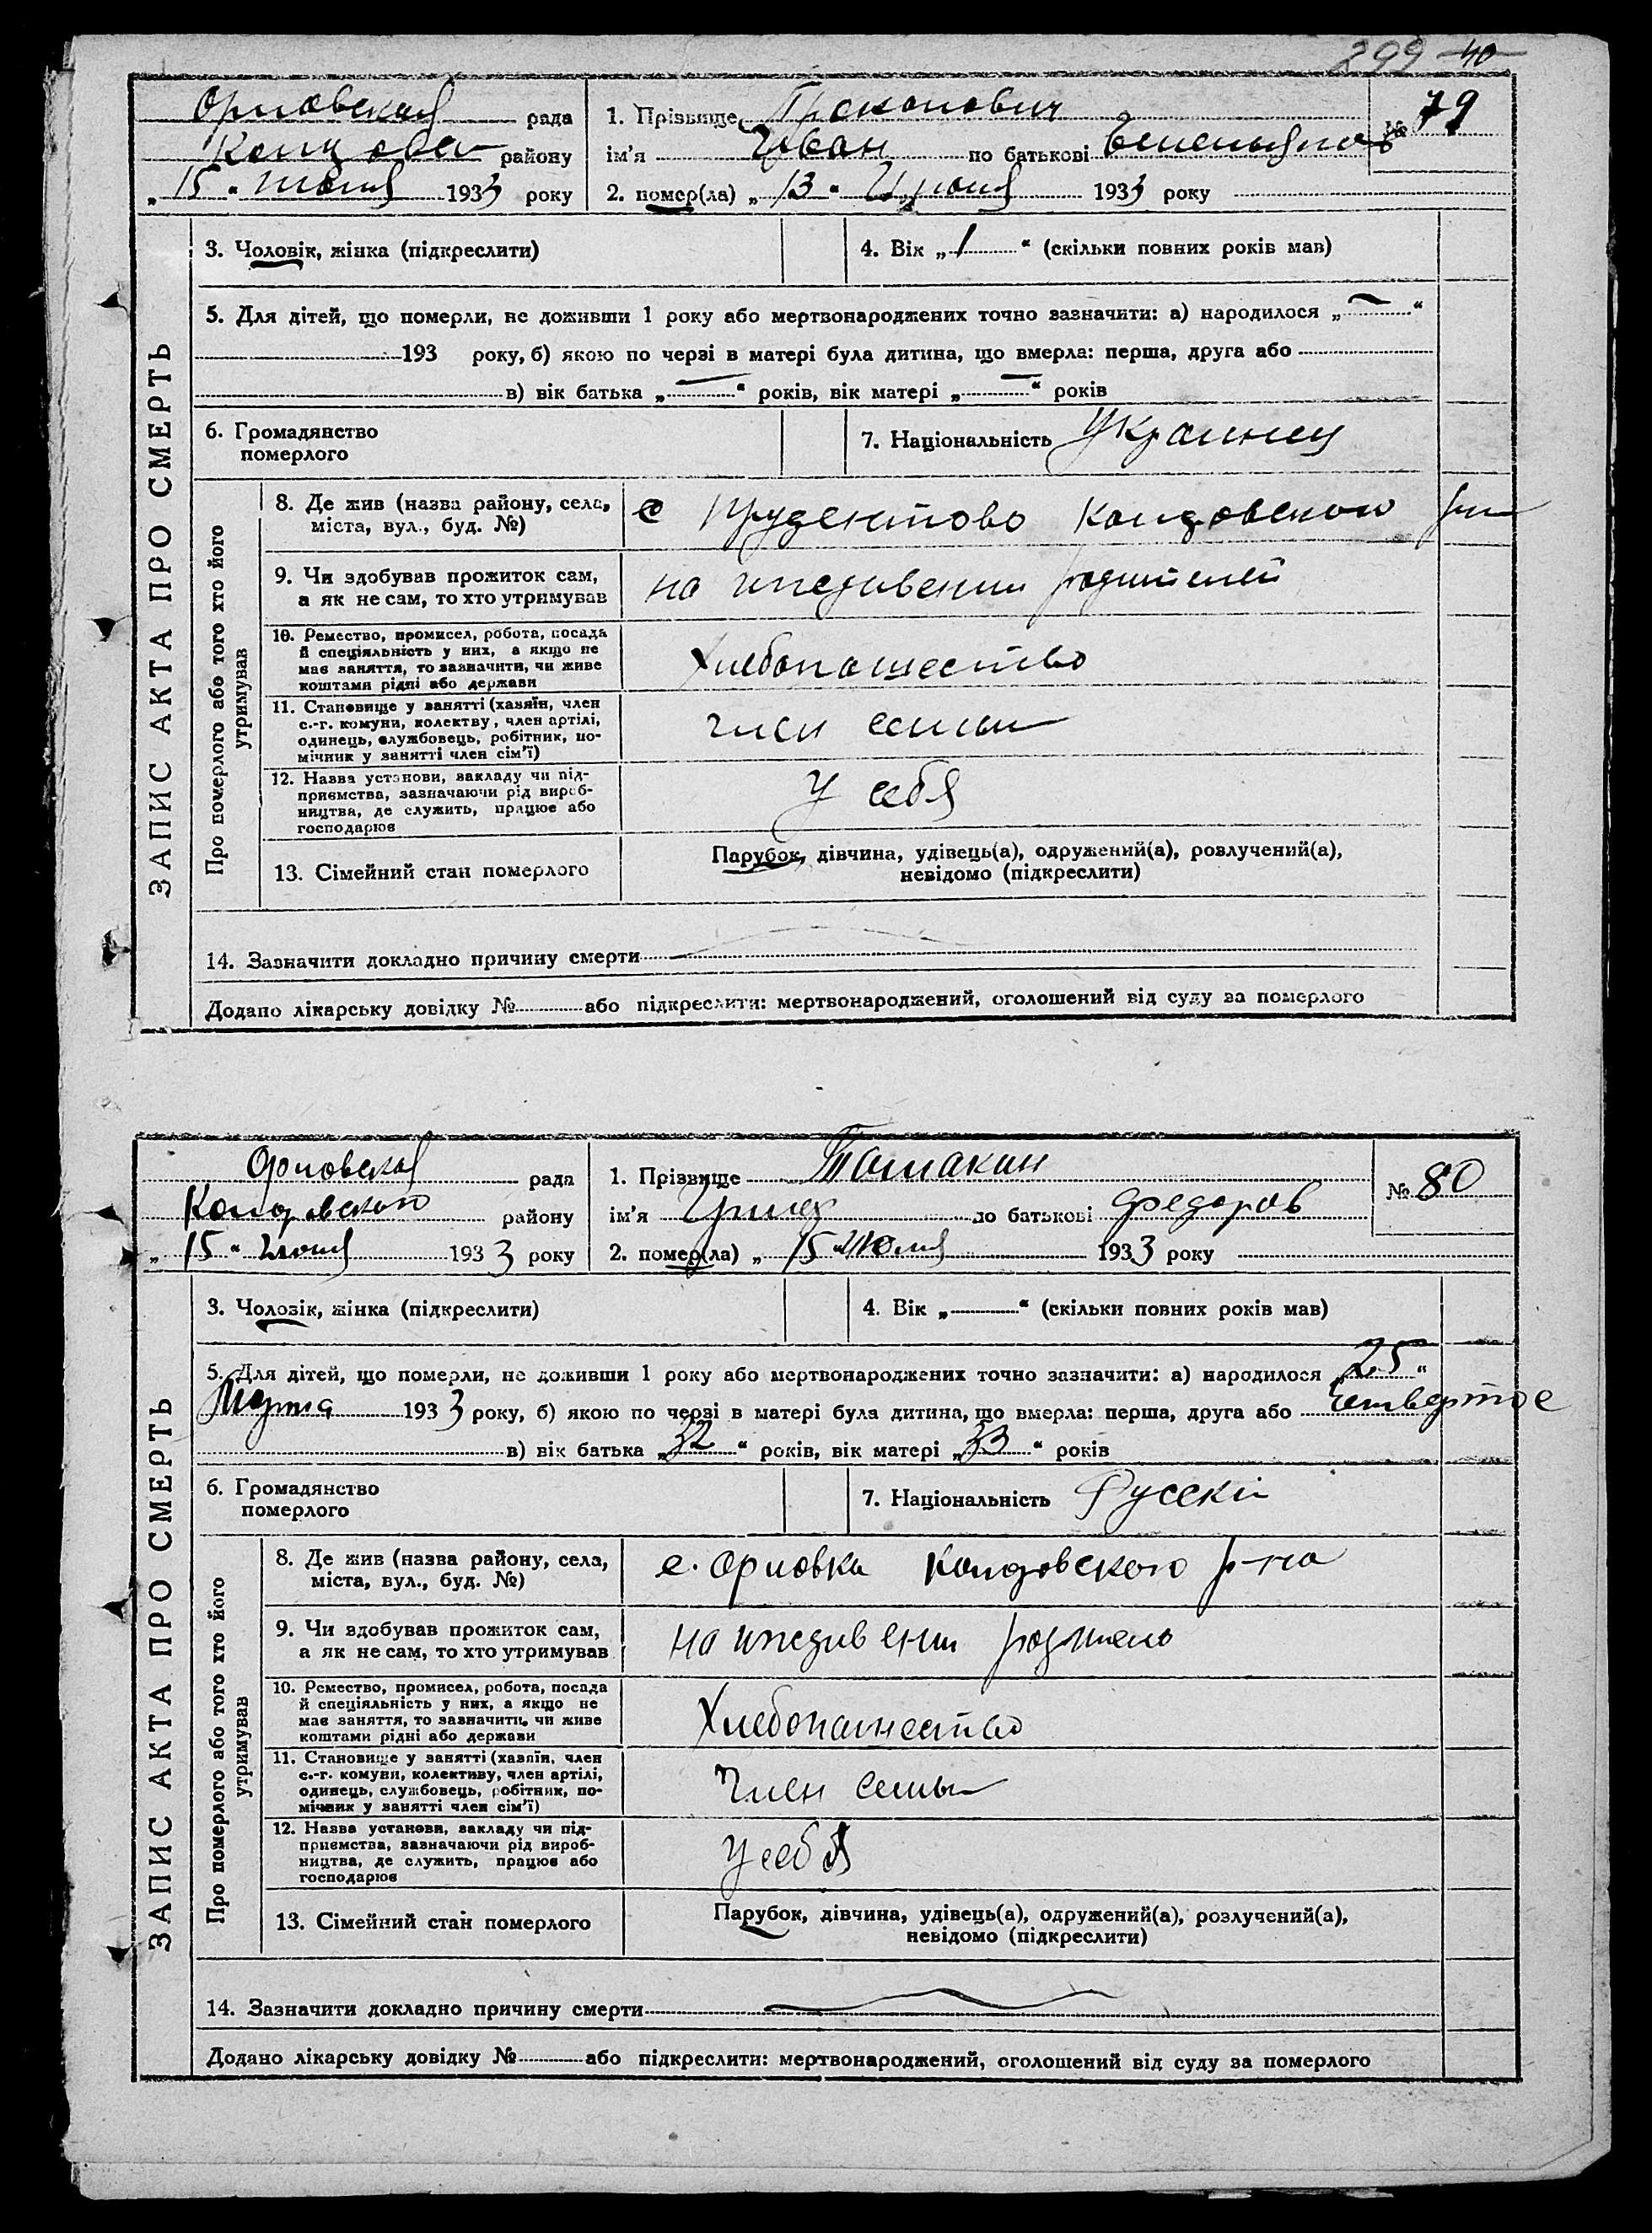 299 40
Орловская рада
района
„ 15 " 1933 року
1. Прізвище Прокопович
ім'я Иван по батькові
№ 79
2. помер(ла) „ 13 " 1933 року
3. Чоловік, жінка (підкреслити)
4. Вік „ 1 " (скільки повних років мав)
5. Для дітей, що померли, не доживши 1 року або мертвонароджених точно зазначити: а) народилося „ — "
193 року, б) якою по черзі в матері була дитина, що вмерла: перша, друга або
в) вік батька „ — " років, вік матері „ — " років
6. Громадянство
померлого
7. Національність Украинец
ЗАПИС АКТА ПРО СМЕРТЬ
Про померлого або того хто його
утримував
8. Де жив (назва району, села,
міста, вул., буд. №)
с Прудентово
9. Чи здобував прожиток сам,
а як не сам, то хто утримував
на иждивении родителей
10. Ремество, промисел, робота, посада
й спеціяльність у них, а якщо не
має заняття, то зазначити, чи живе
коштами рідні або держави
Хлебопашество
11. Становище у занятті (хазяїн, член
с.-г. комуни, колективу, член артілі,
одинець, службовець, робітник, по-
мічник у занятті член сім'ї)
член семьи
12. Назва установи, закладу чи під-
приємства, зазначаючи рід вироб-
ництва, де служить, працює або
господарює
У себя
13. Сімейний стан померлого
Парубок, дівчина, удівець(а), одружений(а), розлучений(а),
невідомо (підкреслити)
14. Зазначити докладно причину смерти
Додано лікарську довідку № або підкреслити: мертвонароджений, оголошений від суду за померлого
Орловская рада
району
„ 15 " 1933 року
1. Прізвище
ім'я по батькові Федоров
№ 80
2. помер(ла) „ 15 " Июля 1933 року
3. Чоловік, жінка (підкреслити)
4. Вік „ " (скільки повних років мав)
5. Для дітей, що померли, не доживши 1 року або мертвонароджених точно зазначити: а) народилося „ 25 "
Марта 1933 року, б) якою по черзі в матері була дитина, що вмерла: перша, друга або четвертое
в) вік батька „ 32 " років, вік матері „ 33 " років
6. Громадянство
померлого
7. Національність Русский
ЗАПИС АКТА ПРО СМЕРТЬ
Про померлого або того хто його
утримував
8. Де жив (назва району, села,
міста, вул., буд. №)
с. Орловка р-на
9. Чи здобував прожиток сам,
а як не сам, то хто утримував
на иждивении
10. Ремество, промисел, робота, посада
й спеціяльність у них, а якщо не
має заняття, то зазначити, чи живе
коштами рідні або держави
Хлебопашество
11. Становище у занятті (хазяїн, член
с.-г. комуни, колективу, член артілі,
одинець, службовець, робітник, по-
мічник у занятті член сім'ї)
Член семьи
12. Назва установи, закладу чи під-
приємства, зазначаючи рід вироб-
ництва, де служить, працює або
господарює
У себя
13. Сімейний стан померлого
Парубок, дівчина, удівець(а), одружений(а), розлучений(а),
невідомо (підкреслити)
14. Зазначити докладно причину смерти
Додано лікарську довідку № або підкреслити: мертвонароджений, оголошений від суду за померлого